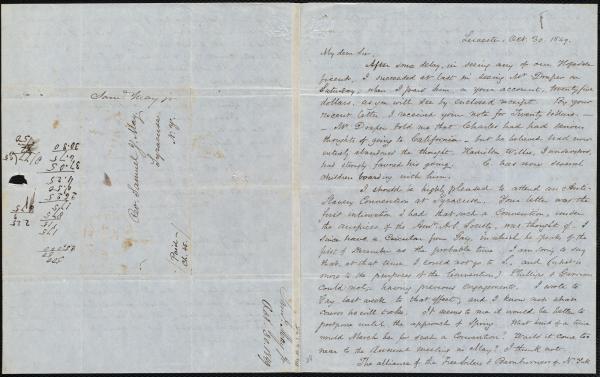 Leicester, Oct. 30. 1849.
My dear Sir,
After some delay, in seeing any of our Hopedale
friends, I succeeded at last in seeing Mr Draper on
Saturday, when I paid him, on your account, twenty five
dollars, as you will see by enclosed receipt. By your
recent letter, I received your note for Twenty dollars. —
— Mr. Draper told me that Charles had had serious
thoughts of going to California — but he believed had now
entirely abandoned the thought. Hamilton Willis, I understood,
has strongly favored his going. C. has now several
children boarding with him.
I should be highly pleased to attend an Anti-
Slavery Convention at Syracuse. Your letter was the
first intimation I had that such a Convention, under
the auspices of the Amn. A. S. Society, was thought of. I
since have a Circular from Gay, in which he speaks of the
first of December as the probable time. I am sorry to say
that, at that time, I could not go to S., and (what is
more to the purposes of the Convention) Phillips & Garrison
could not, having previous engagements. I wrote to
Gay last week to that effect, and I know not what
course he will take. It seems to me it would be better to
postpone until the approach of Spring. What kind of a time
would March be for such a Convention? Would it come too
near to the Annual meeting in May? I think not.
The alliance of the Free Soilers & Barnburners of N. York
Saml. May Jr
Rev. Samuel J. May,
Syracuse
N. Y.
Paid
Saml. May Jr
Oct. 30. 1849